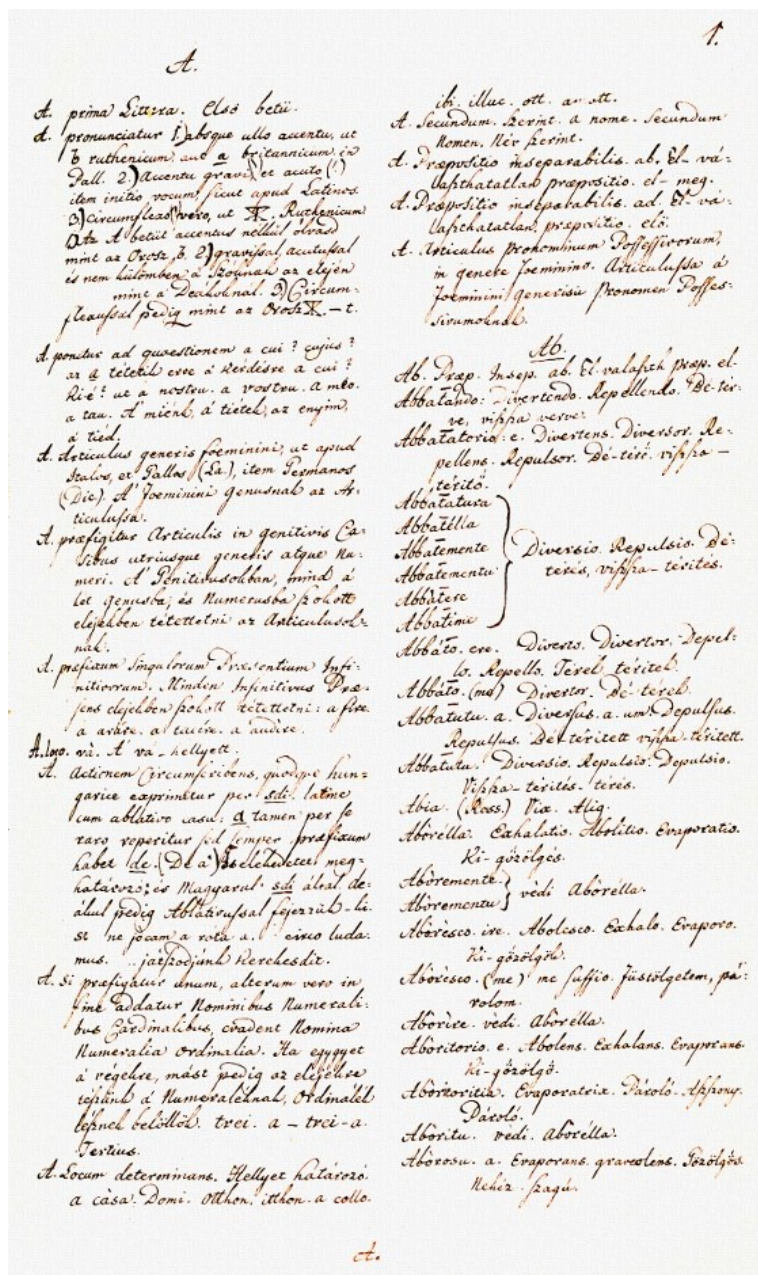 1.
A.
A. prima Littera. Első betü.
A. pronunciatur 1.) absque ullo accentu, ut
ъ ruthenicum, aut a britannicum in
Pall. 2.) Accentu gravi et acuto
item initio vocum, sicut apud Latinos.
3.) Circumflexo vero, ut Ѫ. Ruthenicum
Az A betüt accentus nélkül olvasd
mint az Orosz ъ. 2.) gravissal, acutussal
és nem külömben a Szóknak az elején
mint a Deákoknál. 3.) Circum-
flexussal pedig mint az Orosz Ѫ - t.
A. ponitur ad quaestionem a cui? cujus?
az a tétetik erre a kérdésre a cui?
ki-é? ut a nostru. a vostru. a mèo.
a tau. A' miénk, á tiétek, az enyim,
á tiéd.
A. Articulus generis foeminini, ut apud
Italos, et Gallos (La), item Germanos
(Die). A' Joeminini Genusnak az Ar-
ticulussa.
A. praefigitur Articulis in genitivis Ca-
sibus utriusque generis atque Nu-
meri. A' Genitivusokban, mind á
két genusba, és Numerusba szokott
elejekben tétettetni az Articulusok-
nak.
A. praefixum Singulorum Praesentium Infi-
nitivorum. Minden Infinitivus Prae-
sens elejekben szokott tétettetni: a fire
a aràre. a tacére. a audire.
A. loco. và. A' vá - hellyett.
A. Actionem Circumscribens, quodque hun-
garice exprimitur per sdi. latine
cum ablativo casu: a tamen per se
raro reperitur sed semper praefixum
habet de. (De a) Tselekedetet meg-
határozó; és Magyarul sdi által de-
ákul pedig Ablativussal fejezzük - ki
st ne jocam a rota a. circo luda-
mus. jatszodjunk kerekesdit.
A. Si praefigatur unum, alterum vero in
fine addatur Nominibus Numerali-
bus Cardinalibus, evadent Nomina
Numeralia Ordinalia. Ha egygyet
á végekre, mást pedig az elejekre
teszünk á Numeráléknak, Ordinálék
lésznek belöllök. trei. a - trei - a.
Tertius.
A. Locum determinans. Hellyet határozó.
a càsa. Domi. Otthon. itthon. a collo.
ibi. illuc. ott. amott.
A. Secundum. szerint. a nome. Secundum
Nomen. Név szerint.
A. Praepositio inseparabilis. ab. El- vá-
laszthatatlan praepositio. el- meg.
A. Praepositio inseparabilis. ad. El- vá-
laszthatatlan, praepositio. elő.
A. Articulus pronominum Possessivorum,
in genere Joeminino. Articulussa á
Joeminini generisü Pronomen Posses-
sivumoknak.
Ab.
Ab. Praep. Insep. ab. El-valaszth praep. el-
Abbatàndo: Divertendo. Repellendo. Bé-tér-
ve, viszsza verve.
Abbatatorio. e. Divertens. Diversor. Re-
pellens. Repulsor. Bé-térö. viszsza -
téritö.
Abbatatura
Abbatélla
Abbatemente
Abbatementu
Abbàtere
Abbatime
Diversio. Repulsio. Bé-
térés, viszsza - térités.
Abbàto. ere. Diverto. Divertor. Depel-
lo. Repello. Térek. téritek.
Abbàto. (me) Divertor. Bé-térek.
Abbatutu. a. Diversus. a. um. Depulsus.
Repulsus. Bé-téritett viszsza téritett.
Abbatutu. Diversio. Repulsio. Depulsio.
Viszsza - térités - térés.
Abia. (Ross.) Vix. Alig.
Aborélla. Exhalatio. Abolitio. Evaporatio.
Ki - gőzölgés.
Aboremente
Aborementu
vèdi Aborélla.
Aborèsco. ire. Abolesco. Exhalo. Evaporo.
Ki - gőzölgök.
Aborèsco. (me) me suffio. Füstölgetem, pá-
rolom.
Aborìre. vèdi. Aborélla.
Aboritorio. e. Abolens. Exhalans. Evaporans.
Ki - gőzölgő.
Aboritoritia. Evaporatrix. Pároló - Aszszony.
Pároló.
Aboritu. vèdi. Aborélla.
Aborosu. a. Evaporans. graveolens. Gőzölgős.
Nehéz szagú.
A.